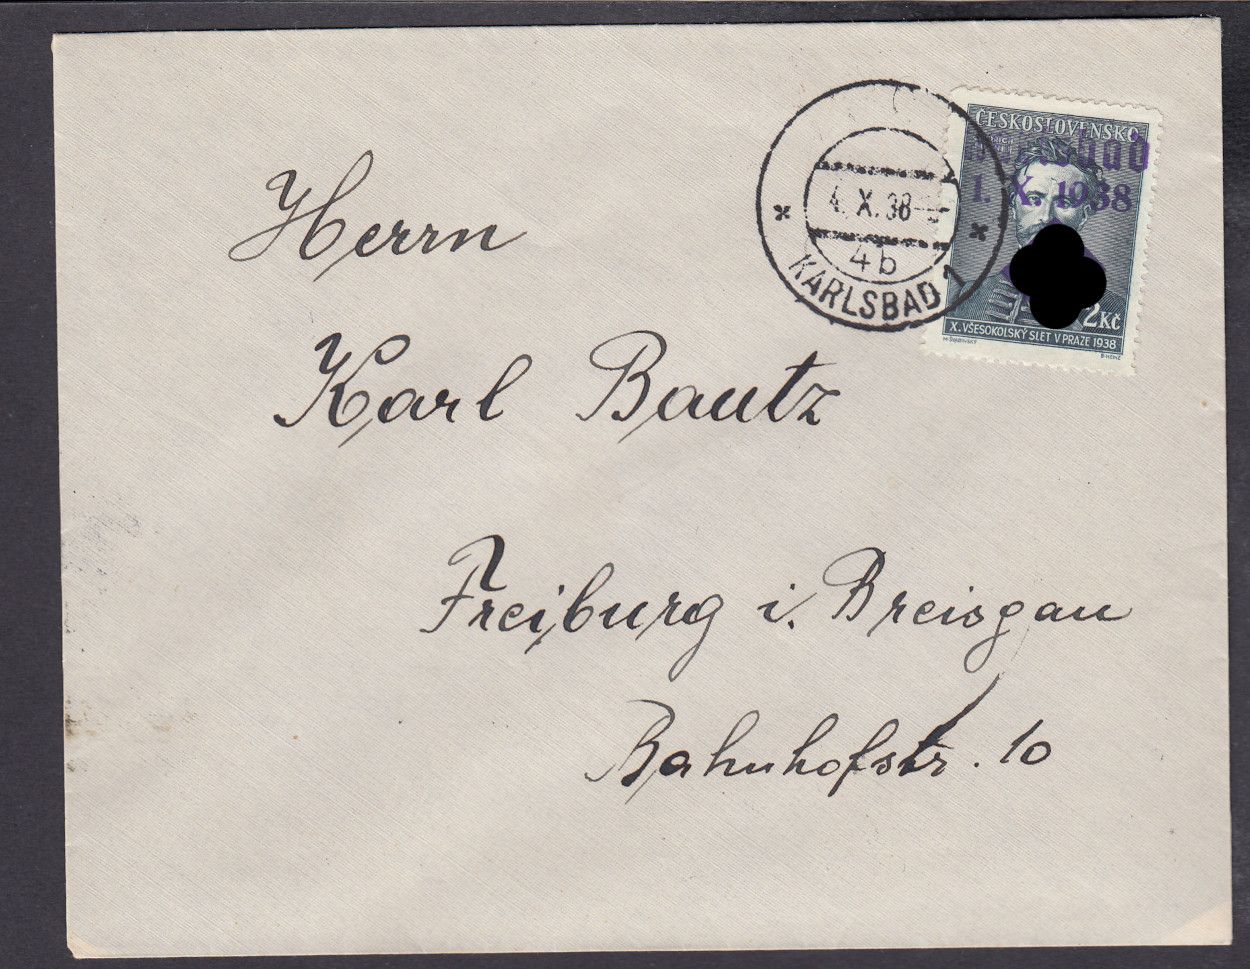 Herrn
Karl Bautz
Freiburg i. Breisgau
Bahnhofstr. 10
4. X. 38
4b
KARLSBAD 1
ČESKOSLOVENSKO
1. X. 1938
2Kč
X. VŠESOKOLSKÝ SLET V PRAZE 1938